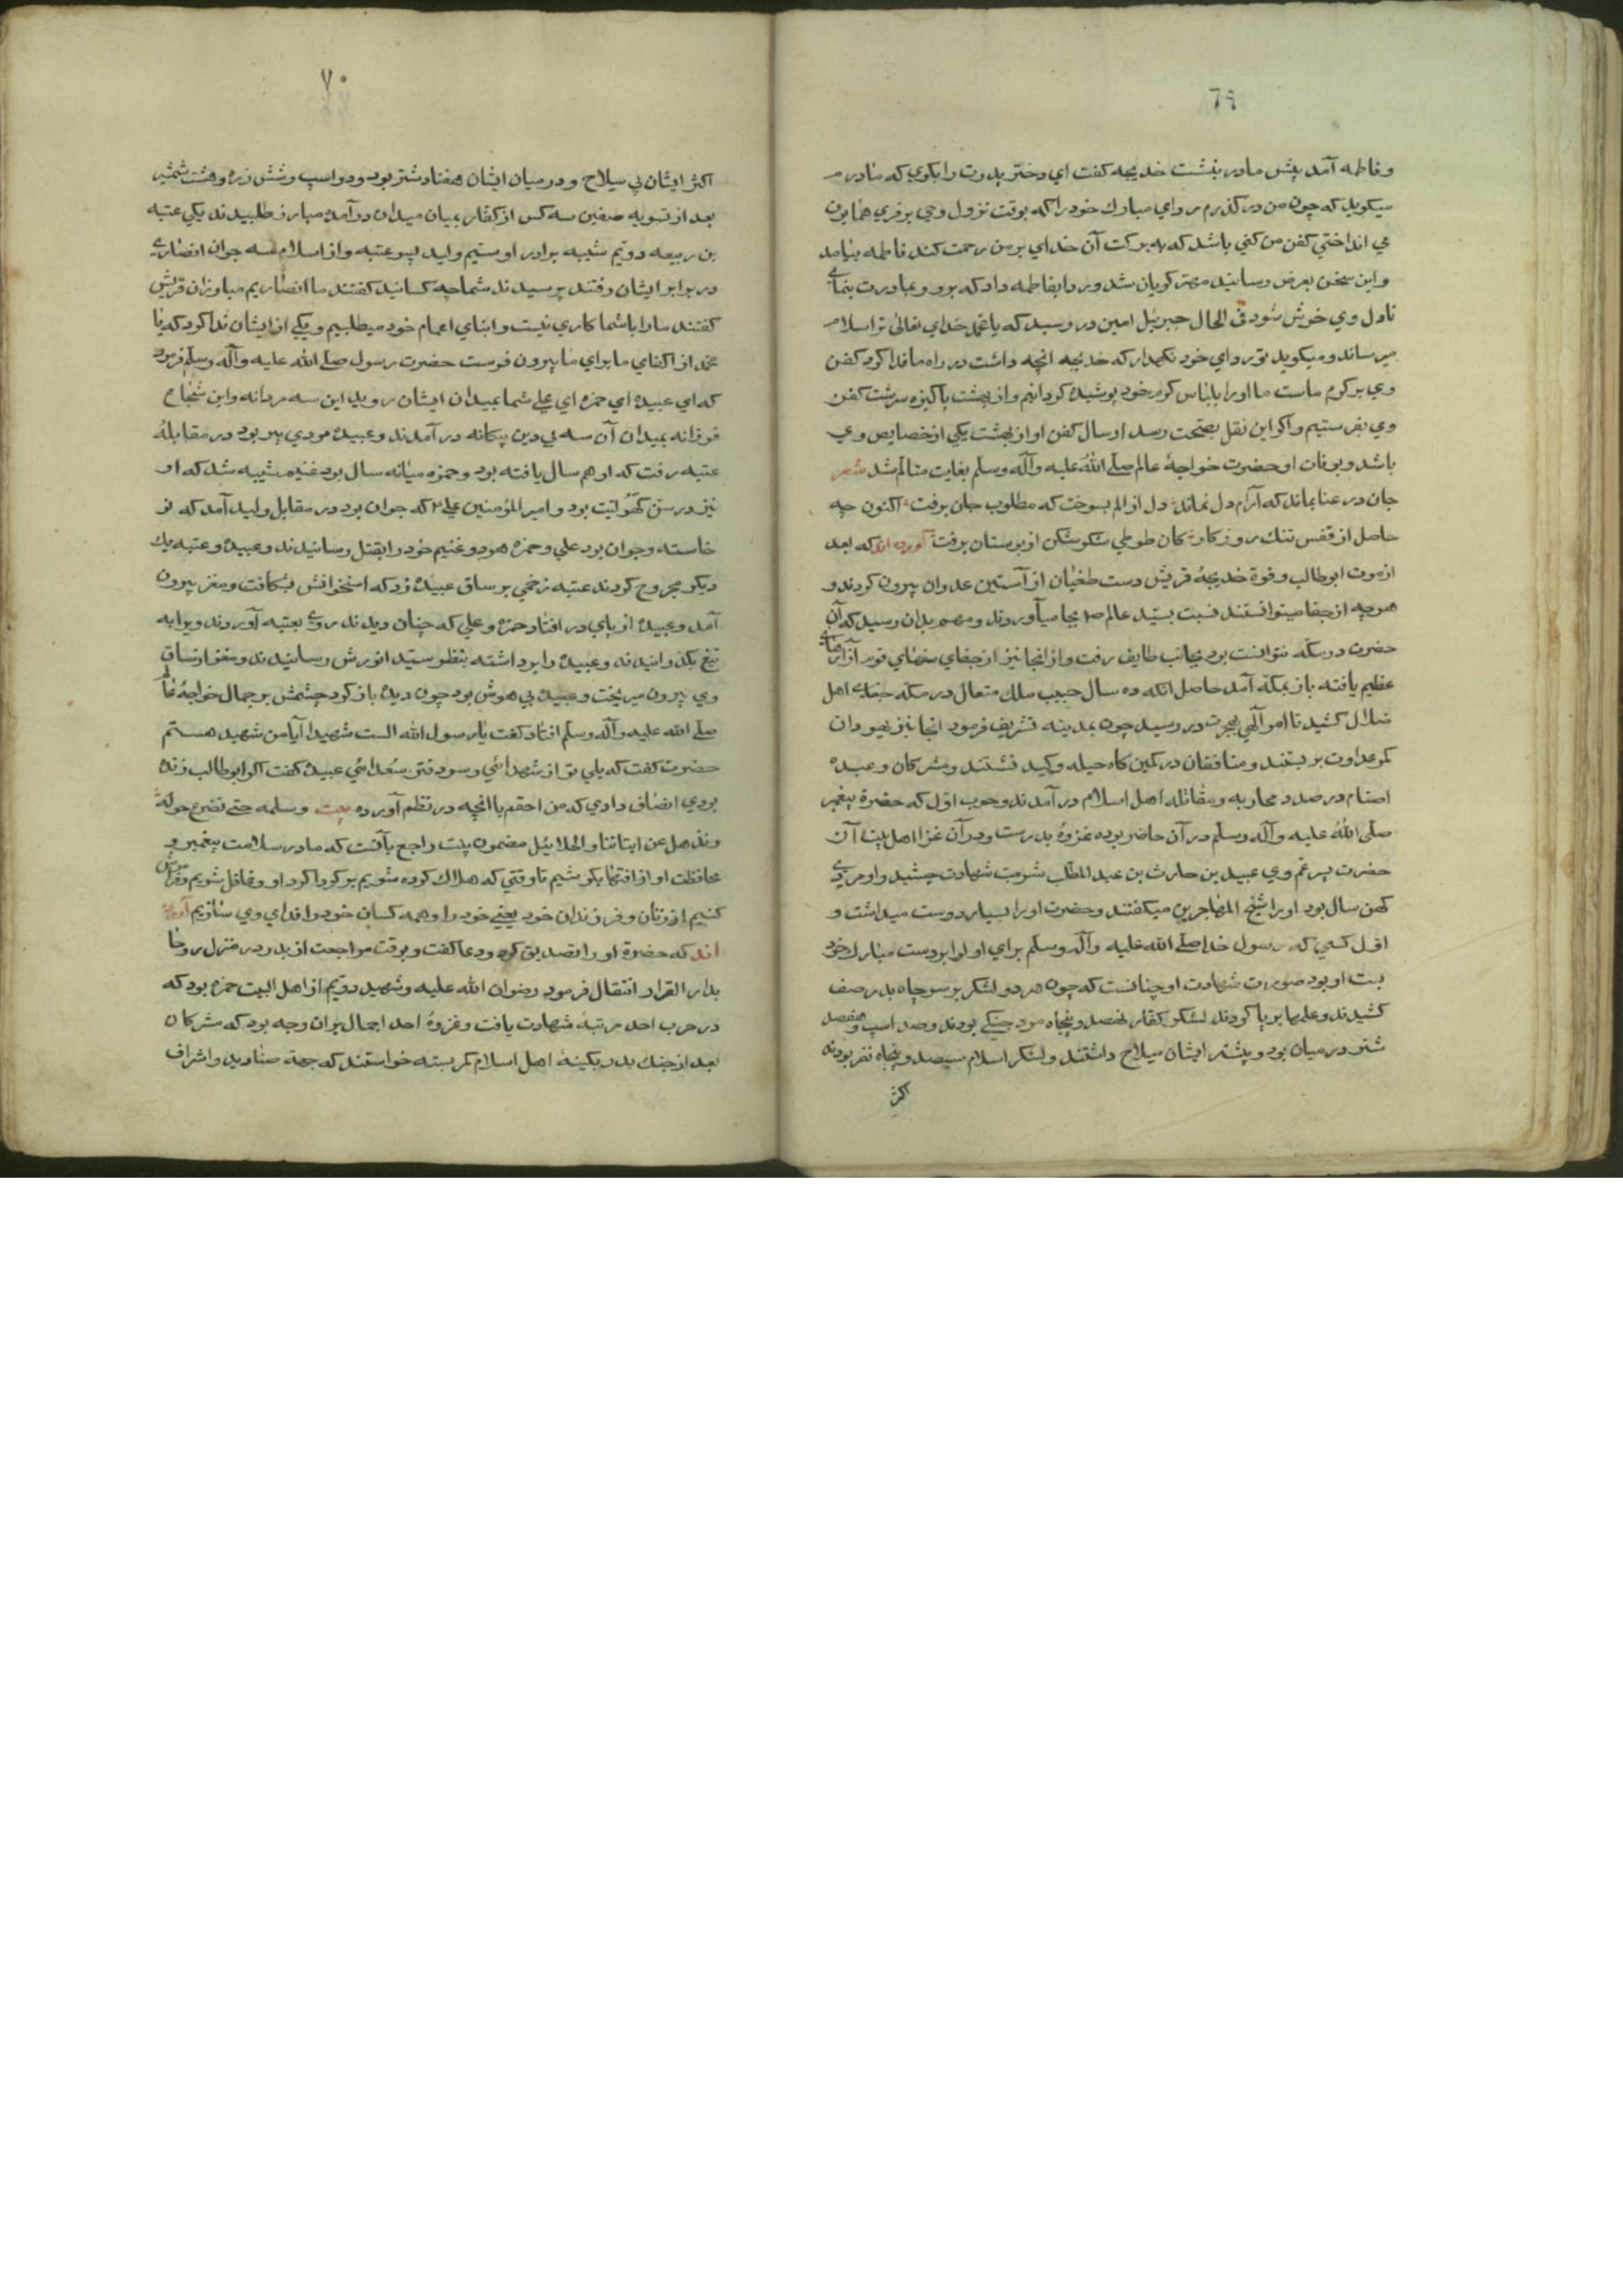 ٦٩
وفاطمه آمد پیش مادر بنشست خدیجه کفت ای دختر پدرت را بکوی که مادرم
میکوید که چون من درکذرم ردای مبارك خود را که بوقت نزول وحی بر فری همایون
می انداختی کفن من کنی باشد که به برکت آن خدای بر من رحمت کند فاطمه بیامد
و این سخن بعرض رسانید مهتر کریان شد و ردا بفاطمه داد که برو و بمادرت بنمای
تا دل وی خوش شود فی الحال جبرئیل امین در رسید که یا محمد خدای تعالی ترا سلام
میرساند و میکوید تو ردای خود نکهدار که خدیجه انچه داشت در راه ما فدا کرد کفن
وی بر کرم ماست ما او را بلباس کرم خود پوشیده کردانیم و از بهشت پاکیزه سرشت کفن
وی بفرستیم و اکر این نقل بصحت رسد ارسال کفن او از بهشت یکی از خصایص وی
باشد و بوفات او حضرت خواجهٔ عالم صلی الله علیه وآله وسلم بغایت متالم شد شعر
جان در عنا بماند که آرام دل نماند دل از الم بسوخت که مطلوب جان برفت اکنون چه
حاصل از قفس تنك روزکار کان طوطی شکر شکن از بوستان برفت آورده اند که بعد
از موت ابوطالب و فوة خدیجهٔ قریش دست طغیان از آستین عدوان بیرون کردند و
هرچه از جفا میتوانستند نسبت بسید عالم ص بجا میآوردند و مهم بدان رسید که آن
حضرت در مکه نتوانست بود بجانب طایف رفت و از انجا نیز از جفای سفهای قوم آزارهای
عظیم یافته باز بمکه آمد حاصل انکه ده سال حبیب ملك متعال در مکه جفای اهل
ضلال کشید تا امر آلهی بهجرت در رسید چون بمدینه تشریف فرمود انجا نیز یهودان
کمر عداوت بر بستند و منافقان در کمین کاه حیله و کید نشستند و مشرکان و عبده
اصنام در صدد محاربه و مقاتله اهل اسلام در آمدند و حرب اول که حضرة پیغمبر
صلی الله علیه وآله وسلم در آن حاضر بوده غزوهٔ بدرست و در آن غزا اهل بیت آن
حضرت پسر عم وی عبید بن حارث بن عبد المطلب شربت شهادت چشید و او مردی
کهن سال بود او را شیخ المهاجرین میکفتند و حضرت او را بسیار دوست میداشت و
اول کسی که رسول خدا صلی الله علیه وآله وسلم برای او لوا بر دست مبارك خود
بست او بود صورت شهادت او چنانست که چون هر دو لشکر بر سر چاه بدر صف
کشیدند و علمها بر پا کردند لشکر کفار نهصد و پنجاه مرد جنکی بودند و صد اسپ و هفصد
شتر در میان بود و بیشتر ایشان سلاح داشتند و لشکر اسلام سیصد و پنجاه نفر بودند
اکثر
٧٠
اکثر ایشان بی سیلاح و در میان ایشان هفتاد شتر بود و دو اسپ و شش زره و هشت شمشیر
بعد از تسویه صفین سه کس از کفار بمیان میدان در آمده مبارز طلبیدند یکی عتبه
بن ربیعه دویم شیبه برادر او سیم ولید پسر عتبه و از اسلام سه جوان انصاری
در برابر ایشان رفتند پرسیدند شما چه کسانید کفتند ما انصاریم مبارزان قریش
کفتند ما را با شما کاری نیست و ابنای اعمام خود میطلبیم و یکی از ایشان ندا کرد که یا
محمد از اکفای ما برای ما بیرون فرست حضرت رسول صلی الله علیه وآله وسلم فرمود
که ای عبیده ای حمزه ای علی شما بمیدان ایشان روید این سه مردانه و این شجاع
فرزانه بمیدان آن سه بی دین بیکانه در آمدند و عبیده مردی پیر بود در مقابلهٔ
عتبه رفت که او هم سال یافته بود و حمزه میانه سال بود غنیم شیبه شد که او
نیز در سن کهولیت بود و امیر المؤمنین علی ع که جوان بود در مقابل ولید آمد که نو
خاسته و جوان بود علی و حمزه هر دو غنیم خود را بقتل رسانیدند و عبیده و عتبه یك
دیکر مجروح کردند عتبه زخمی بر ساق عبیده زد که استخوانش بشکافت و مغز بیرون
آمد و عبیده از پای در افتاد حمزه و علی که چنان دیدند روی بعتبه آوردند و یرا به
تیغ بکذرانیدند و عبیده را برداشته بنظر سید انورش رسانیدند و مغز از ساق
وی بیرون میریخت و عبیده بی هوش بود چون دیده باز کرد چشمش بر جمال خواجهٔ عالم
صلی الله علیه وآله وسلم افتاد کفت یا رسول الله الست شهیدا آیا من شهید هستم
حضرت کفت که بلی تو از شهدائی و سر دفتر سعدائی عبیده کفت اکر ابوطالب زنده
بودی انصاف دادی که من احقم با انچه در نظم آورده بیت وسلمه حتی نصرع حوله
ونذهل عن ابنائنا والحلایل مضمون بیت راجع بآنست که ما در سلامت پیغمبر و
محافظت او از افتها بکوشیم تا وقتی که هلاك کرده شویم بر کرداکرد او و غافل شویم و فراموش
کنیم از زنان و فرزندان خود یعنی خود را و همه کسان خود را فدای وی سازیم آورده
اند که حضرة او را تصدیق کرده و دعا کفت و بوقت مراجعت از بدر در منزل روحا
بدار القرار انتقال فرمود رضوان الله علیه و شهید دویم از اهل البیت حمزه بود که
در حرب احد مرتبهٔ شهادت یافت و غزوهٔ احد اجمال بران وجه بود که مشرکان
بعد از جنك بدر بکینهٔ اهل اسلام کمر بسته خواستند که جهة صنادید و اشراف